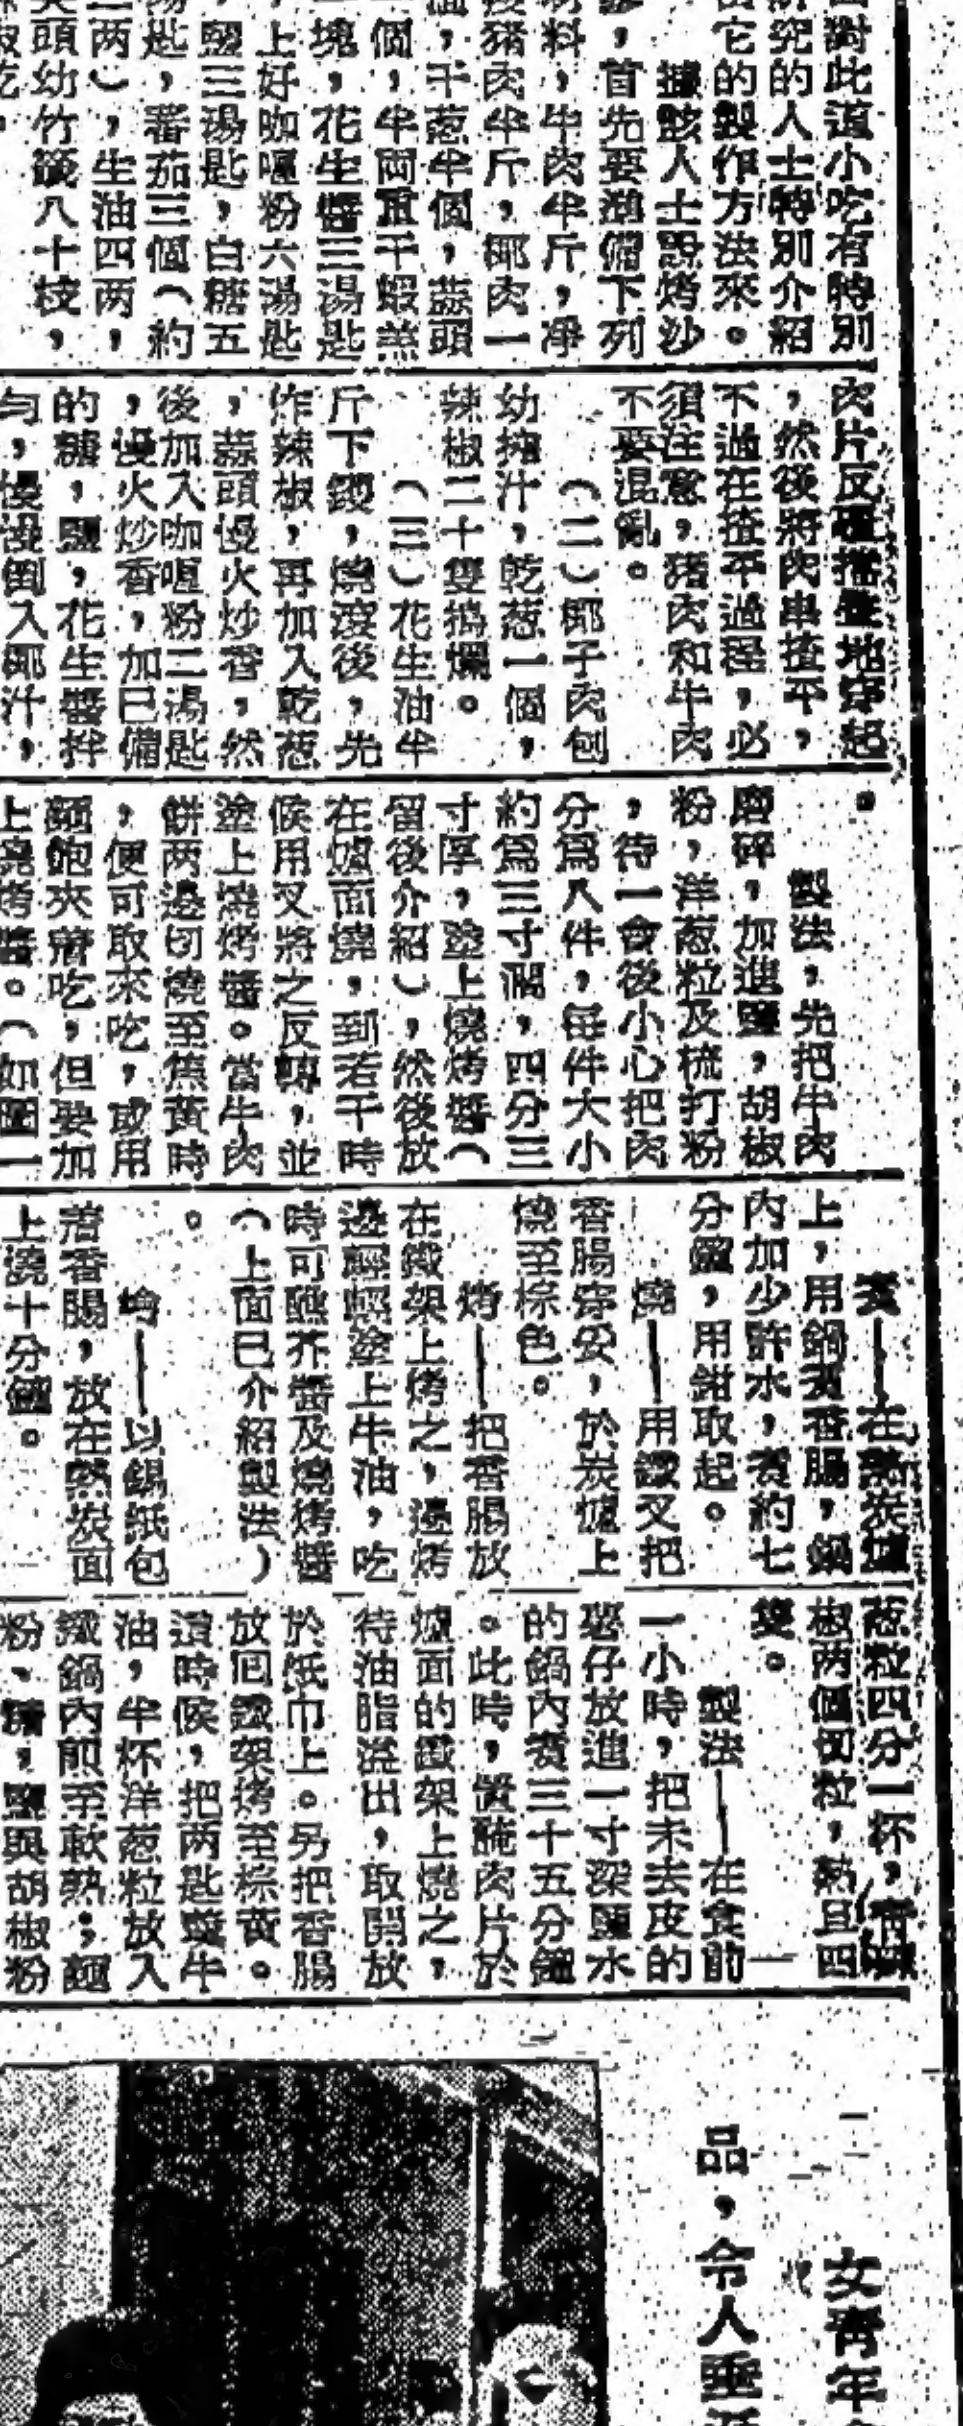 對此道小吃有特別
究的人士特別介紹
它的製作方法來。
據該人士說烤沙
,首先要準備下列
料,牛肉半斤,凈
豬肉半斤,椰肉一
,干葱半個,蒜頭
個,半両重干蝦羔
塊,花生醬三湯匙
上好咖喱粉六湯匙
鹽三湯匙,白糖五
匙,蕃茄三個(約
两),生油四两,
頭幼竹籤八十枝,
肉片反覆摺叠地穿起
,然後將肉串揸平,
不過在揸平過程,必
須注意,豬肉和牛肉
不要混亂。
(二)椰子肉刨
幼搾汁,乾葱一個,
辣椒二十隻搗爛。
(三)花生油半
斤下鑊,燒滾後,先
炸辣椒,再加入乾葱
,蒜頭慢火炒香,然
後加入咖喱粉二湯匙
,慢火炒香,加巳備
的糖,鹽,花生醬拌
勻,慢慢倒入椰汁,
。
製法,先把牛肉
磨碎,加進鹽,胡椒
粉,洋葱粒及梳打粉
,待一會後小心把肉
分爲八件,每件大小
約爲三寸濶,四分三
寸厚,塗上燒烤醬(
留後介紹),然後放
在爐面燒,到若干時
候用叉將之反轉,並
塗上燒烤醬。當牛肉
餅两邊切燒至焦黃時
,便可取來吃,或用
麵飽夾着吃,但要加
上燒烤醬。(如圖一
煑——在熱炭爐
上,用鍋煑香腸,鍋
內加少許水,煑約七
分鐘,用鉗取起。
燒——用鐵叉把
香腸穿妥,於炭爐上
燒至棕色。
烤——把香腸放
在鐵架上烤之,邊烤
邊輕輕塗上牛油,吃
時可醮芥醬及燒烤醬
(上面巳介紹製法)
。
——以錫紙包
着香腸,放在熱炭面
上燒十分鐘。
葱粒四分一杯,青
椒两個切粒,熟旦四
隻。
製法——在食前
一小時,把未去皮的
薯仔放進一寸深鹽水
的鍋內煑三十五分鐘
。此時,置醃肉片於
爐面的鐵架上燒之,
待油脂流出,取開放
於纸巾上。另把香腸
放囘鐵架烤至棕黃。
這時候,把两匙羹牛
油,半杯洋葱粒放入
鐵鍋內煎至軟熟;麵
粉、糖,鹽與胡椒粉
女青年
品,令人垂